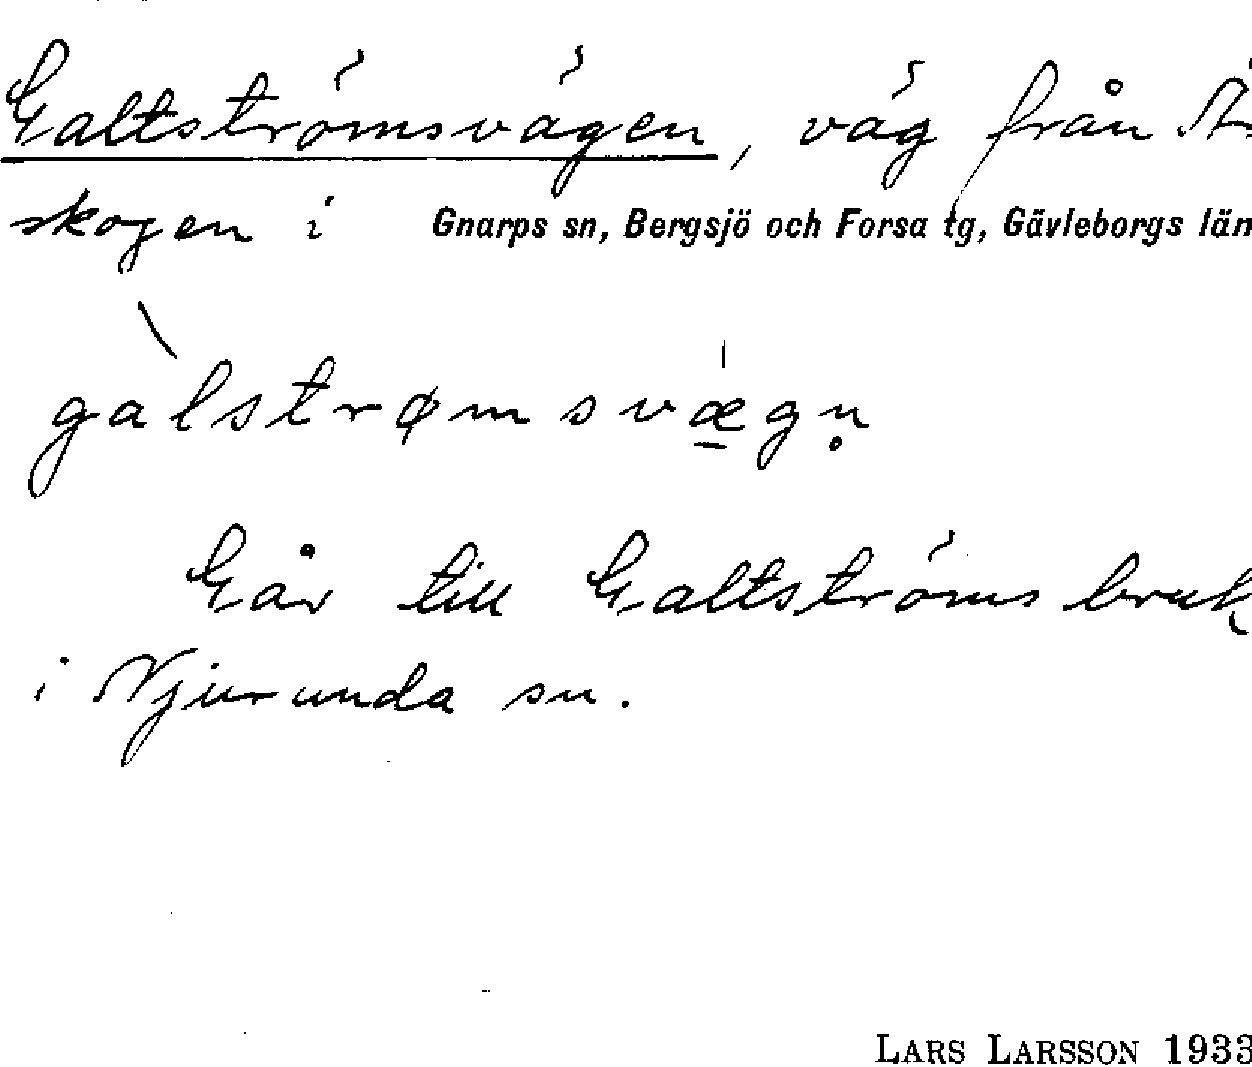 Galtströmsvägen, väg från
skogen i Gnarps sn, Bergsjö och Forsa tg, Gävleborgs län
gàlstrømsvæ̱gn̥
Går till Galtströms bruk
i Njurunda sn.
LARS LARSSON 1933